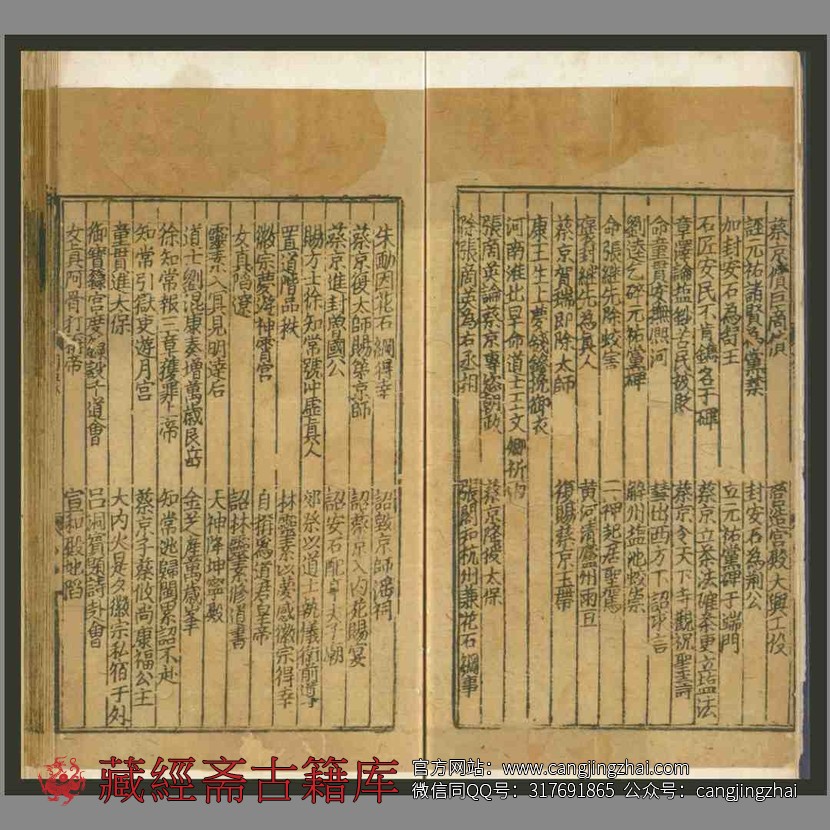 蔡京償巨商債 營葺宮殿大興工役
誣元祐諸賢為黨禁 封安石為荊公
加封安石為舒王 立元祐黨碑于端門
石匠安民不肯鐫名于碑 蔡京立茶法 更立塩法
章澤論塩鈔 民被貶 蔡京令天下寺觀祝聖壽
命童貫安撫熙河 彗出西方下詔求言
劉逵乞碎元祐黨碑 解州塩池蛟祟
命張継先除蛟害 二神起居聖駕
褒封継先為真人 黄河清廬州雨豆
蔡京賀瑞即除太師 復賜蔡京玉帶
康王生上夢錢鏐挽御衣
河南淮 旱命道士王文卿祈
張商英論蔡京專恣朝政 蔡京降授太保
除張商英為右丞相 張閣知杭州兼花石綱事
朱勔因花石綱得幸 詔毀京師滛祠
蔡京復太師賜第京師 詔蔡京入内苑賜宴
蔡京進封魯國公 詔安石配
賜方士徐知常號冲虛真人 郊祭以道士執儀衛前導
置道階品秩 林靈素以夢感徽宗得幸
徽宗夢游神霄宮 自 為道君皇帝
女真䧟遼 詔林靈素修道書
靈素入 見明逹后 天神降坤寧殿
道士劉混康奏增萬歲艮岳 金芝産萬歲峯
徐知常報三章獲罪上帝 知常逃歸閩累詔不赴
知常引獄吏遊月宮 蔡京子蔡攸尚康福公主
童貫進太保 大内火是夕徽宗私宿于外
御寳籙宮度 千道會 吕洞賓題詩 會
女真阿骨打 帝 宣和殿地䧟
藏經斋古籍库
官方网站：www.cangjingzhai.com
微信同QQ号：317691865 公众号：cangjingzhai